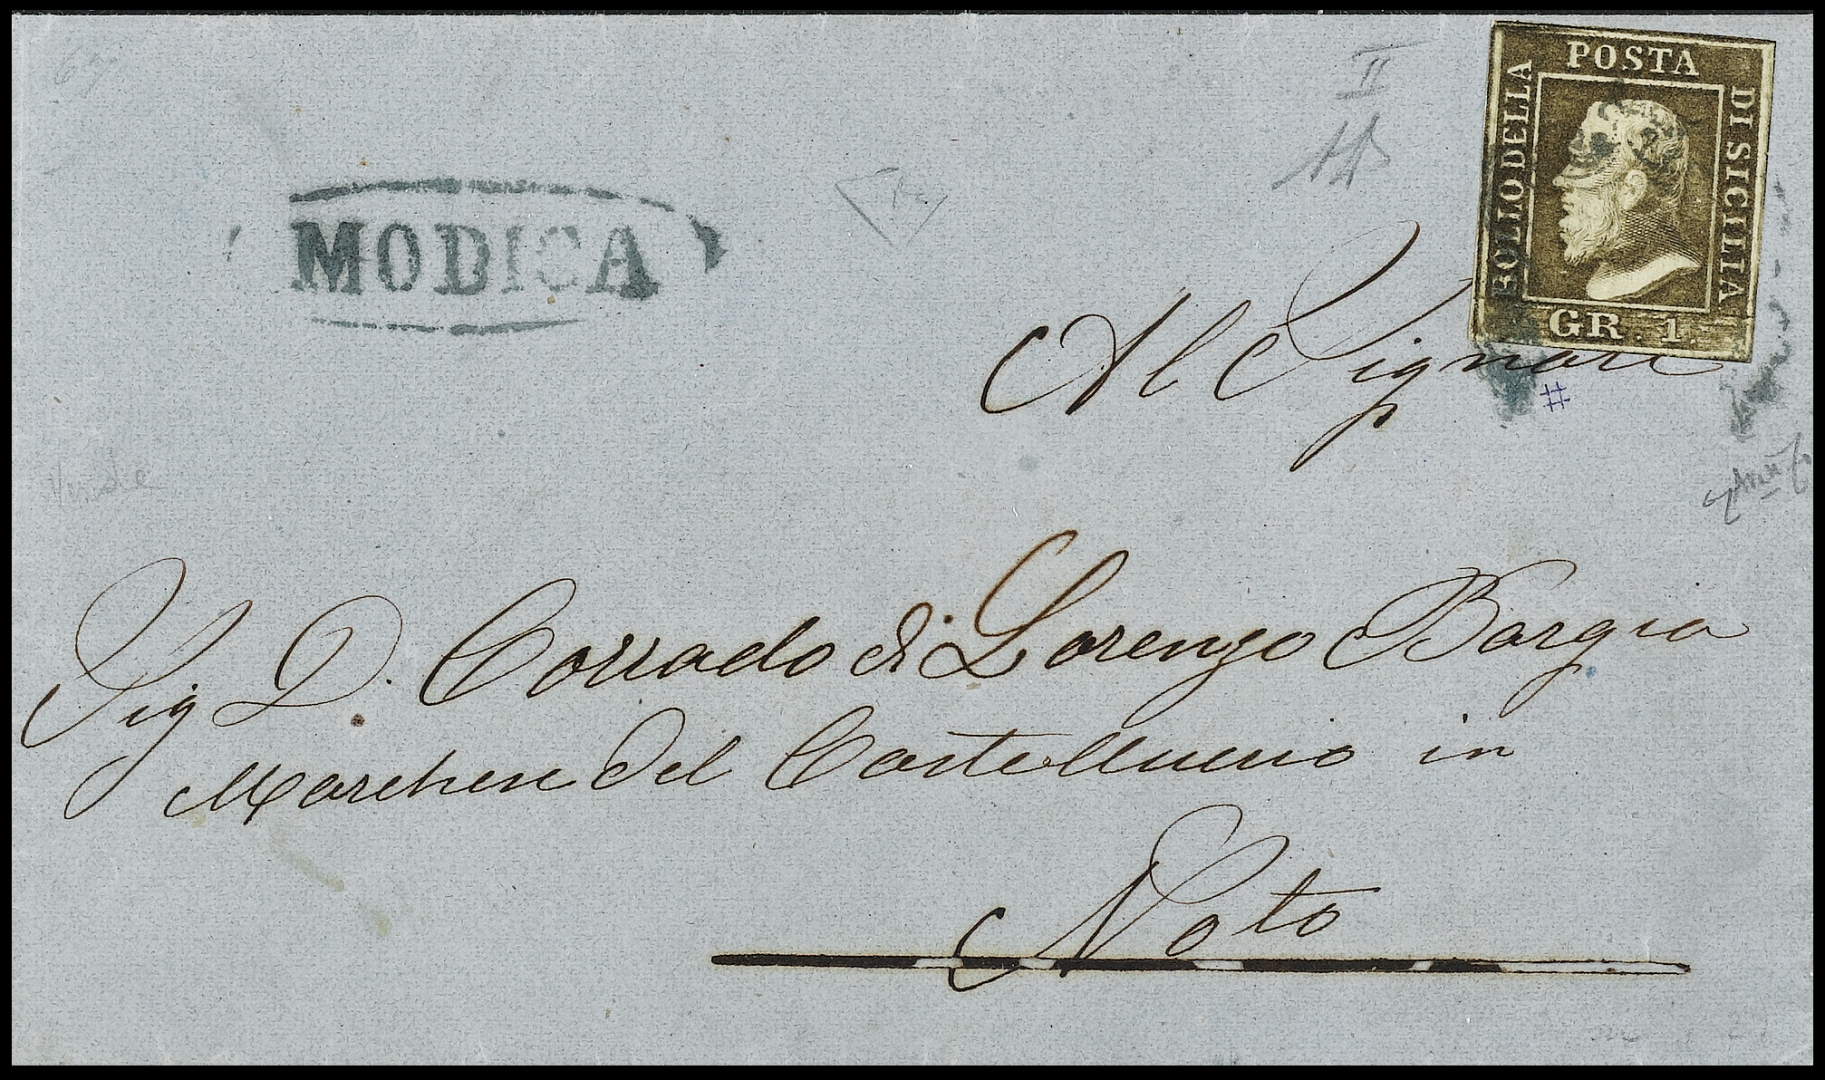 MODICA
II
POSTA
BOLLO DELLA
DI SICILIA
GR. 1
#
Al Signore
Sig D. Corrado di Lorenzo Borgia
Marchese del Castelluccio in
Noto